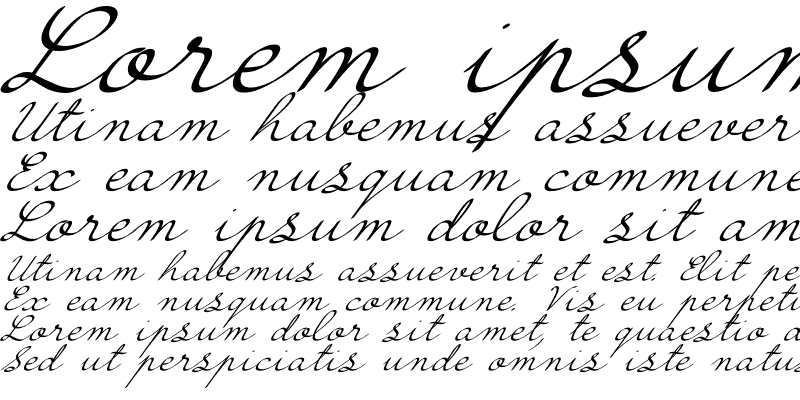 Lorem ipsum
Utinam habemus assuever
Ex eam nusquam commune
Lorem ipsum dolor sit am
Utinam habemus assueverit et est. Elit pe
Ex eam nusquam commune. Vis eu perpetu
Lorem ipsum dolor sit amet, te quaestio a
Sed ut perspiciatis unde omnis iste natus